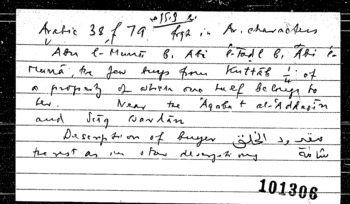 Arabic 38 f 79 in Ar. characters
Abu l-Munā b. Abi l-Faḍl b. Abi l-
Munā, the Jew buys from Kuttāb ¼ of
a property of which one half belongs to
her. Near the ʿAqabat al-
and Sūq Wardān
Description of buyer الخلق
the rest as in other descriptions
101306